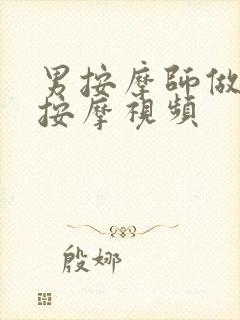 男按摩師做
按摩視頻
殷娜